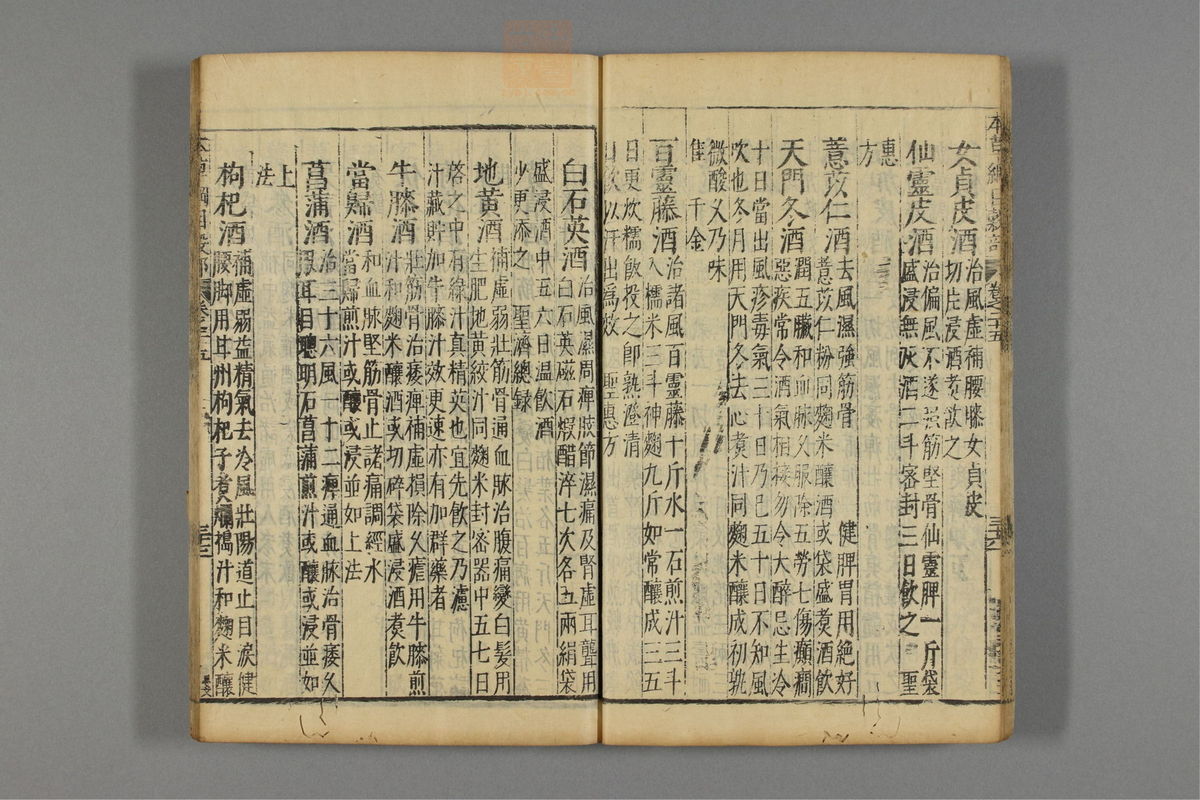 女貞皮酒治風虛補腰膝女貞皮
切片浸酒煮飲之
仙靈皮酒治偏風不遂強筋堅骨仙靈脾一斤袋
盛浸無灰酒二斗密封三日飲之 聖
惠
方
薏苡仁酒去風濕強筋骨 健脾胃用絶好
薏苡仁粉同麴米釀酒或袋盛煮酒飲
天門冬酒潤五臟和血脉久服除五勞七傷癲癇
惡疾常令酒氣相接勿令大醉忌生冷
十日當出風疹毒氣三十日乃已五十日不知風
吹也冬月用天門冬去心煮汁同麴米釀成初熟
微酸久乃味
佳 千金
百靈藤酒治諸風百靈藤十斤水一石煎汁三斗
入糯米三斗神麴九斤如常釀成三五
日更炊糯飯投之即熟澄清
日飲以汗出爲效 聖惠方
白石英酒治風濕周痺肢節濕痛及腎虛耳聾用
白石英磁石煆醋淬七次各五兩絹袋
盛浸酒中五六日温飲酒
少更添之 聖濟總録
地黃酒補虛弱壯筋骨通血脉治腹痛變白髮用
生肥地黃絞汁同麴米封密器中五七日
啓之中有綠汁真精英也宜先飲之乃濾
汁藏貯加牛膝汁效更速亦有加群藥者
牛膝酒壯筋骨治痿痺補虛損除久瘧用牛膝煎
汁和麴米釀酒或切碎袋盛浸酒煮飲
當歸酒和血脉堅筋骨止諸痛調經水
當歸煎汁或釀或浸並如上法
菖蒲酒治三十六風一十二痺通血脉治骨痿久
服耳目聰明石菖蒲煎汁或釀或浸並如
上
法
枸杞酒補虛弱益精氣去冷風壯陽道止目淚健
腰脚用甘州枸杞子煮爛搗汁和麴米釀